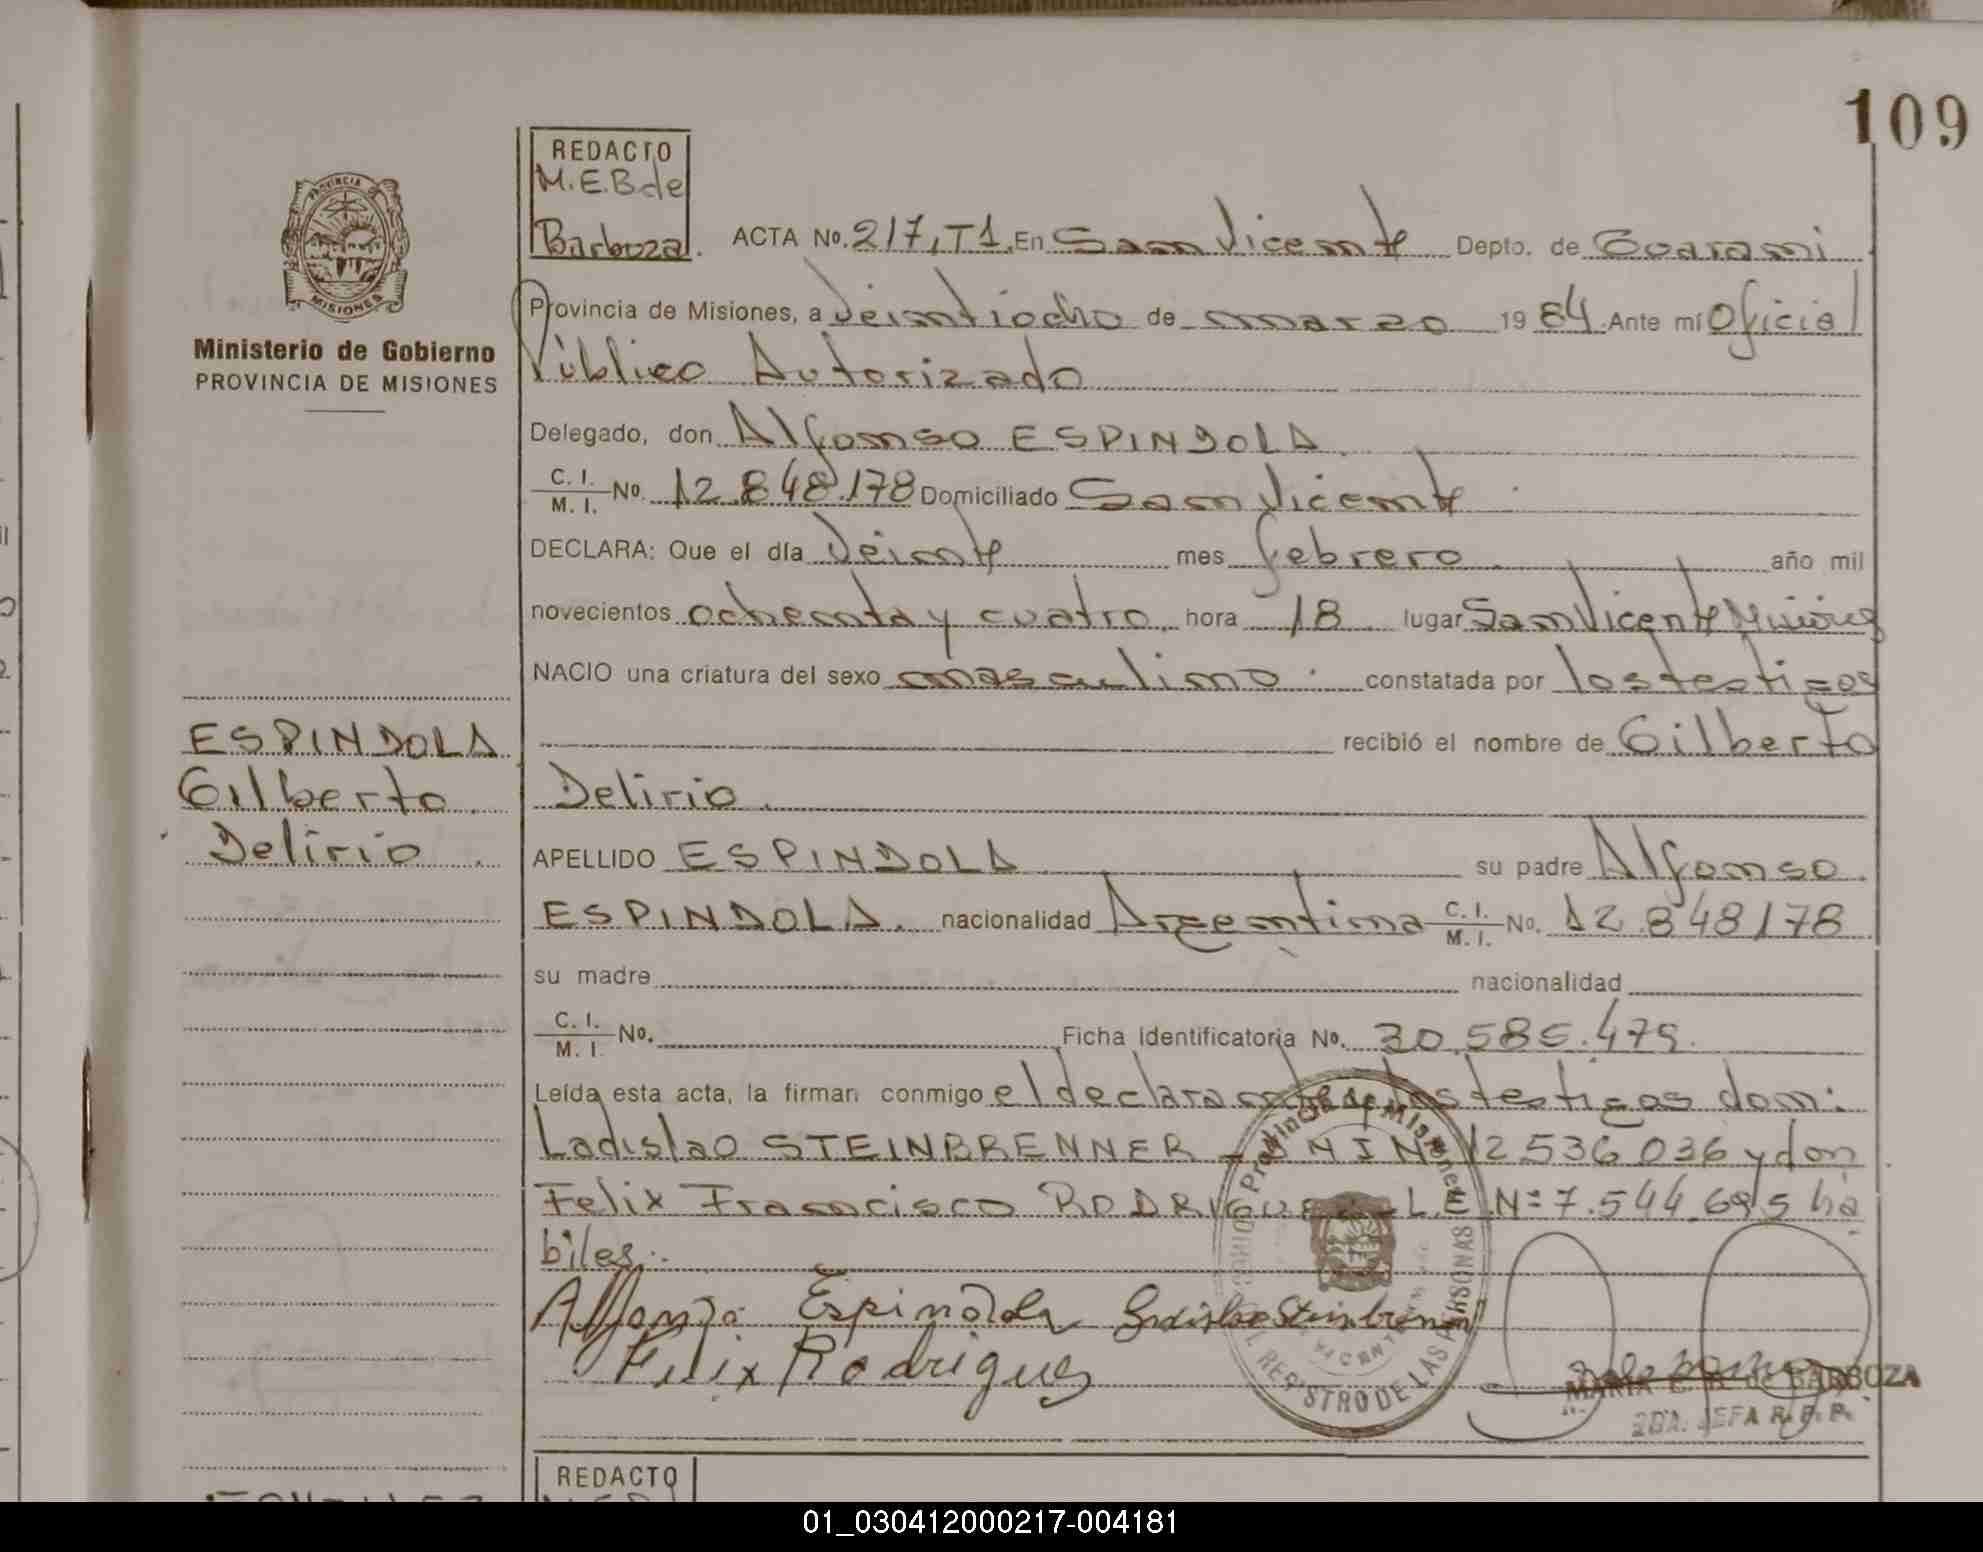 109
REDACTO
M.E.B de
Barboza.
ACTA No. 217, T1. En San Vicente Depto. de Guarani
Provincia de Misiones, a Veintiocho de marzo 19 84. Ante mí Oficial
Público Autorizado
Delegado, don Alfonso ESPINDOLA.
C. I. / M. I. No. 12.848.178 Domiciliado San Vicente
DECLARA: Que el día Veinte mes febrero. año mil
novecientos ochenta y cuatro, hora 18 lugar San Vicente Misiones
NACIO una criatura del sexo masculino constatada por los testigos
recibió el nombre de Gilberto
Delirio.
APELLIDO ESPINDOLA su padre Alfonso
ESPINDOLA. nacionalidad Argentina C. I. / M. I. No. 12.848178
su madre nacionalidad
C. I. / M. I. No. Ficha Identificatoria No. 30.585.479.
Leída esta acta, la firman conmigo el declarante y los testigos don:
Ladislao STEINBRENNER - NIN 12536036 y don
Felix Francisco RODRIGUEZ L.E Nº 7.544.695 há
biles.
Alfonso Espindola Ladislao Steinbrenner
Felix Rodriguez
MARIA E. B. de BARBOZA
2DA. JEFA R.P.P.
PROVINCIA
MISIONES
Ministerio de Gobierno
PROVINCIA DE MISIONES
ESPINDOLA
Gilberto
Delirio.
Provincia de Misiones
REGISTRO DE LAS PERSONAS
REDACTO
01_030412000217-004181